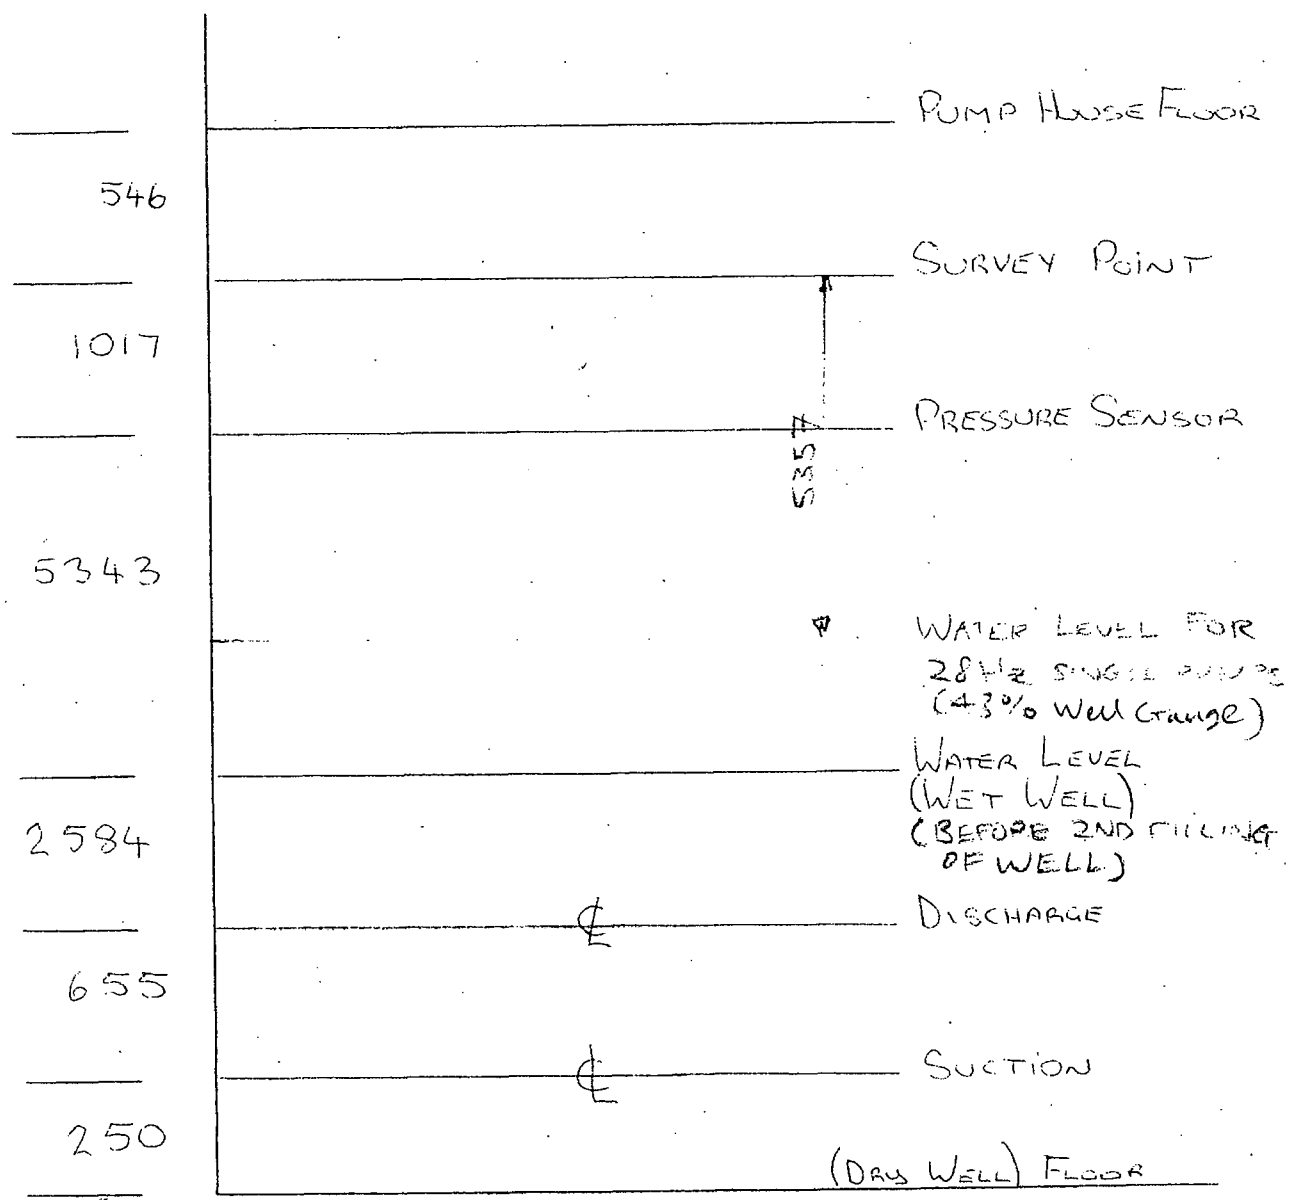 PUMP HOUSE FLOOR
546
SURVEY POINT
1017
PRESSURE SENSOR
5357
5343
WATER LEVEL FOR
28Hz SINGLE
(43% Well Gauge)
WATER LEVEL
(WET WELL)
2584
(BEFORE 2ND FILLING
OF WELL)
DISCHARGE
655
SUCTION
250
(DRY WELL) FLOOR